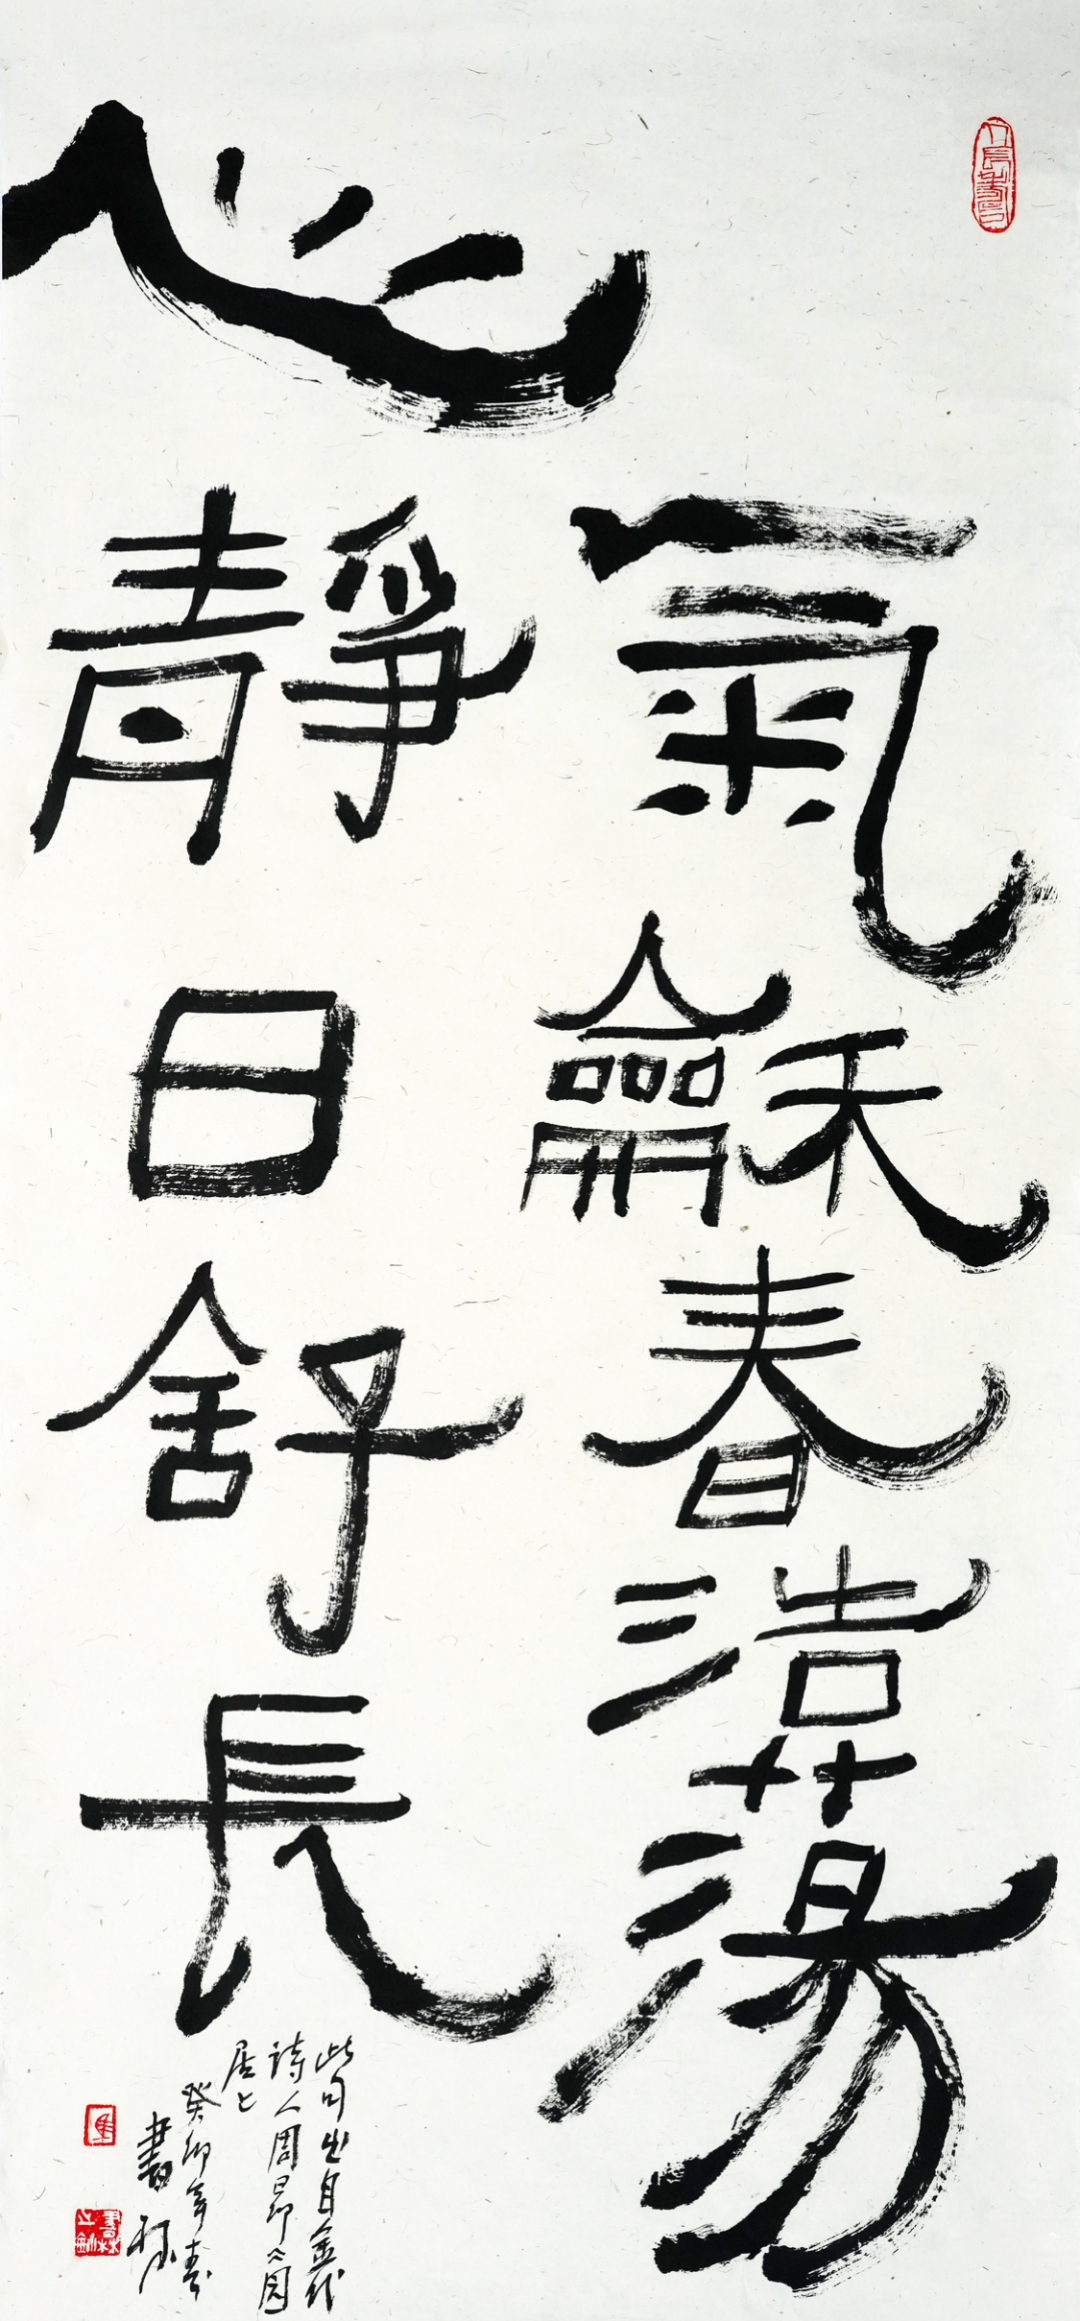 氣龢春浩蕩
心靜日舒長
此句出自金代
詩人周昂《園
居》
癸卯年春
書林